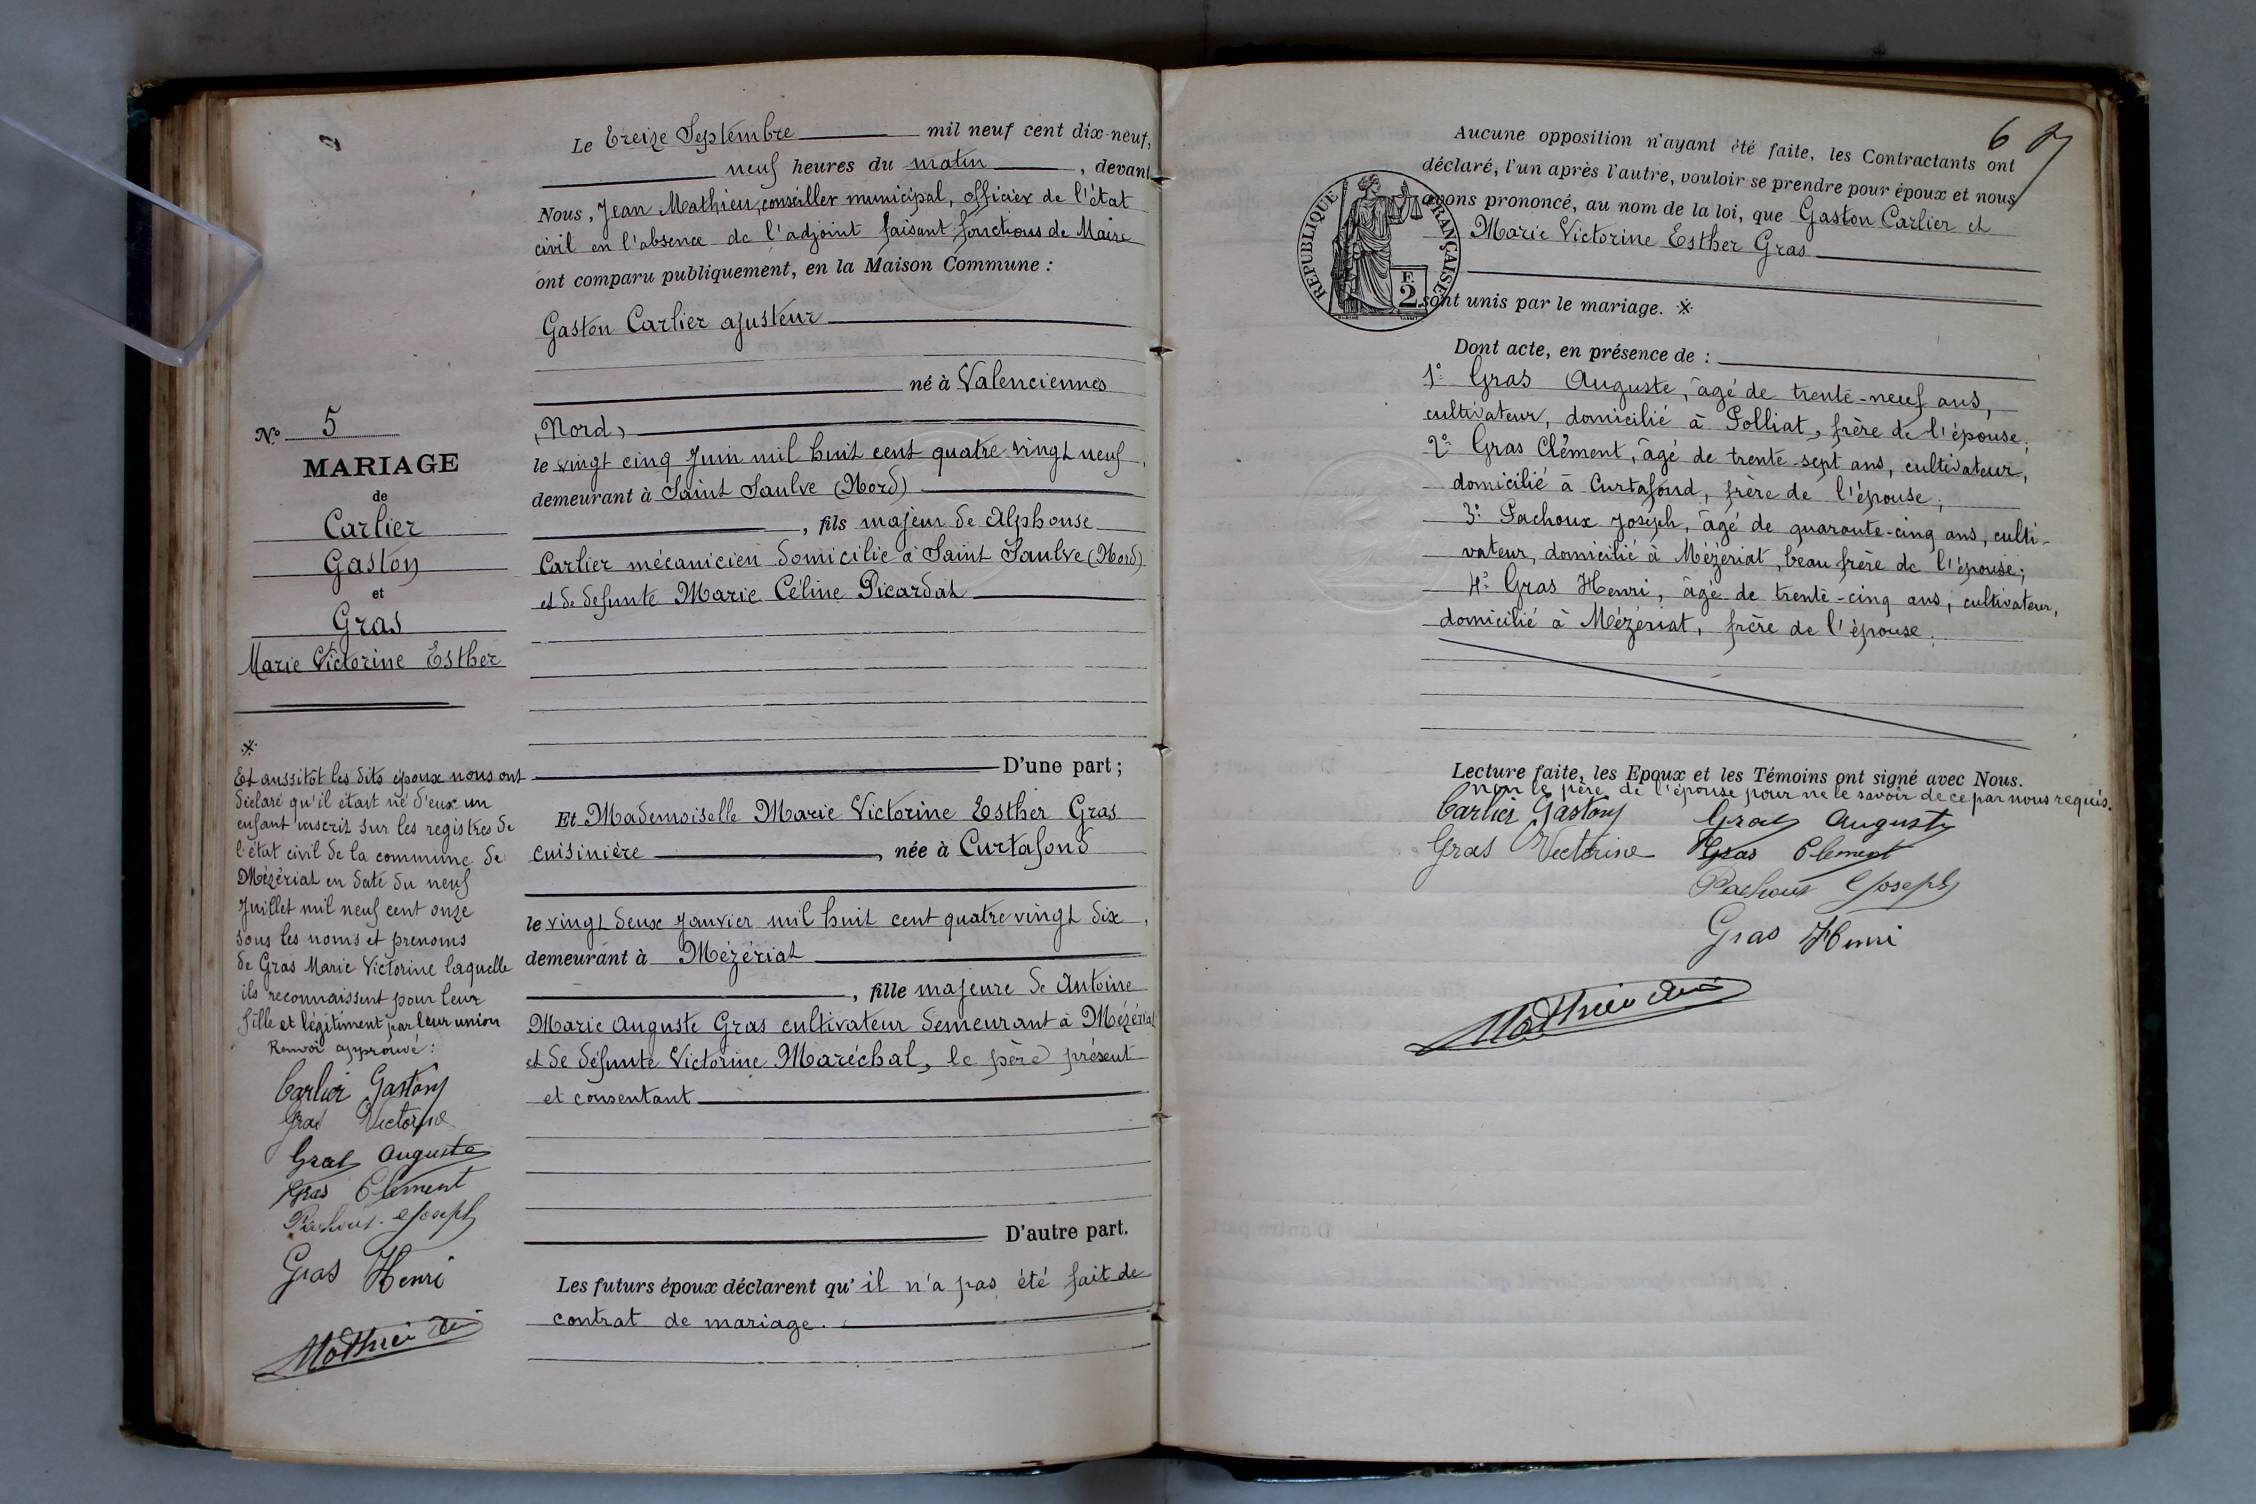 Le Treize Septembre mil neuf cent dix-neuf,
neuf heures du matin, devant
Nous, Jean Mathieu, conseiller municipal, officier de l'état
civil en l'absence de l'adjoint faisant fonctions de Maire
ont comparu publiquement, en la Maison Commune :
Gaston Carlier ajusteur
né à Valenciennes
(Nord)
le vingt cinq Juin mil huit cent quatre vingt neuf,
demeurant à Saint Saulve (Nord)
, fils majeur de Alphonse
Carlier mécanicien domicilié à Saint Saulve (Nord)
et de defunte Marie Céline Picardat
D'une part ;
Et Mademoiselle Marie Victorine Esther Gras
cuisinière, née à Curtafond
le vingt deux Janvier mil huit cent quatre vingt dix,
demeurant à Mézériat
, fille majeure de Antoine
Marie Auguste Gras cultivateur demeurant à Mézériat
et de défunte Victorine Maréchal, le père présent
et consentant
D'autre part.
Les futurs époux déclarent qu'il n'a pas été fait de
contrat de mariage.
N° 5
MARIAGE
de
Carlier
Gaston
et
Gras
Marie Victorine Esther
*
Et aussitôt les dits époux nous ont
déclaré qu'il était né d'eux un
enfant inscrit sur les registres de
l'état civil de la commune de
Mézériat en date du neuf
Juillet mil neuf cent onze
sous les noms et prenoms
de Gras Marie Victorine laquelle
ils reconnaissent pour leur
fille et légitiment par leur union
Renvoi approuvé :
Carlier Gaston
Gras Victorine
Gras Auguste
Gras Clement
Pachoux Joseph
Gras Henri
Mathieu
6
Aucune opposition n'ayant été faite, les Contractants ont
déclaré, l'un après l'autre, vouloir se prendre pour époux et nous
avons prononcé, au nom de la loi, que Gaston Carlier et
Marie Victorine Esther Gras
sont unis par le mariage. *
RÉPUBLIQUE FRANÇAISE
F
2
Dont acte, en présence de :
1° Gras Auguste, âgé de trente-neuf ans,
cultivateur, domicilié à Polliat, frère de l'épouse;
2° Gras Clément, âgé de trente-sept ans, cultivateur,
domicilié à Curtafond, frère de l'épouse;
3° Pachoux Joseph, âgé de quarante-cinq ans, culti-
vateur, domicilié à Mézériat, beau frère de l'épouse;
4° Gras Henri, âgé de trente-cinq ans, cultivateur,
domicilié à Mézériat, frère de l'épouse.
Lecture faite, les Epoux et les Témoins ont signé avec Nous.
non le père de l'épouse pour ne le savoir de ce par nous requis.
Carlier Gaston Gras Auguste
Gras Victorine Gras Clement
Pachoux Joseph
Gras Henri
Mathieu